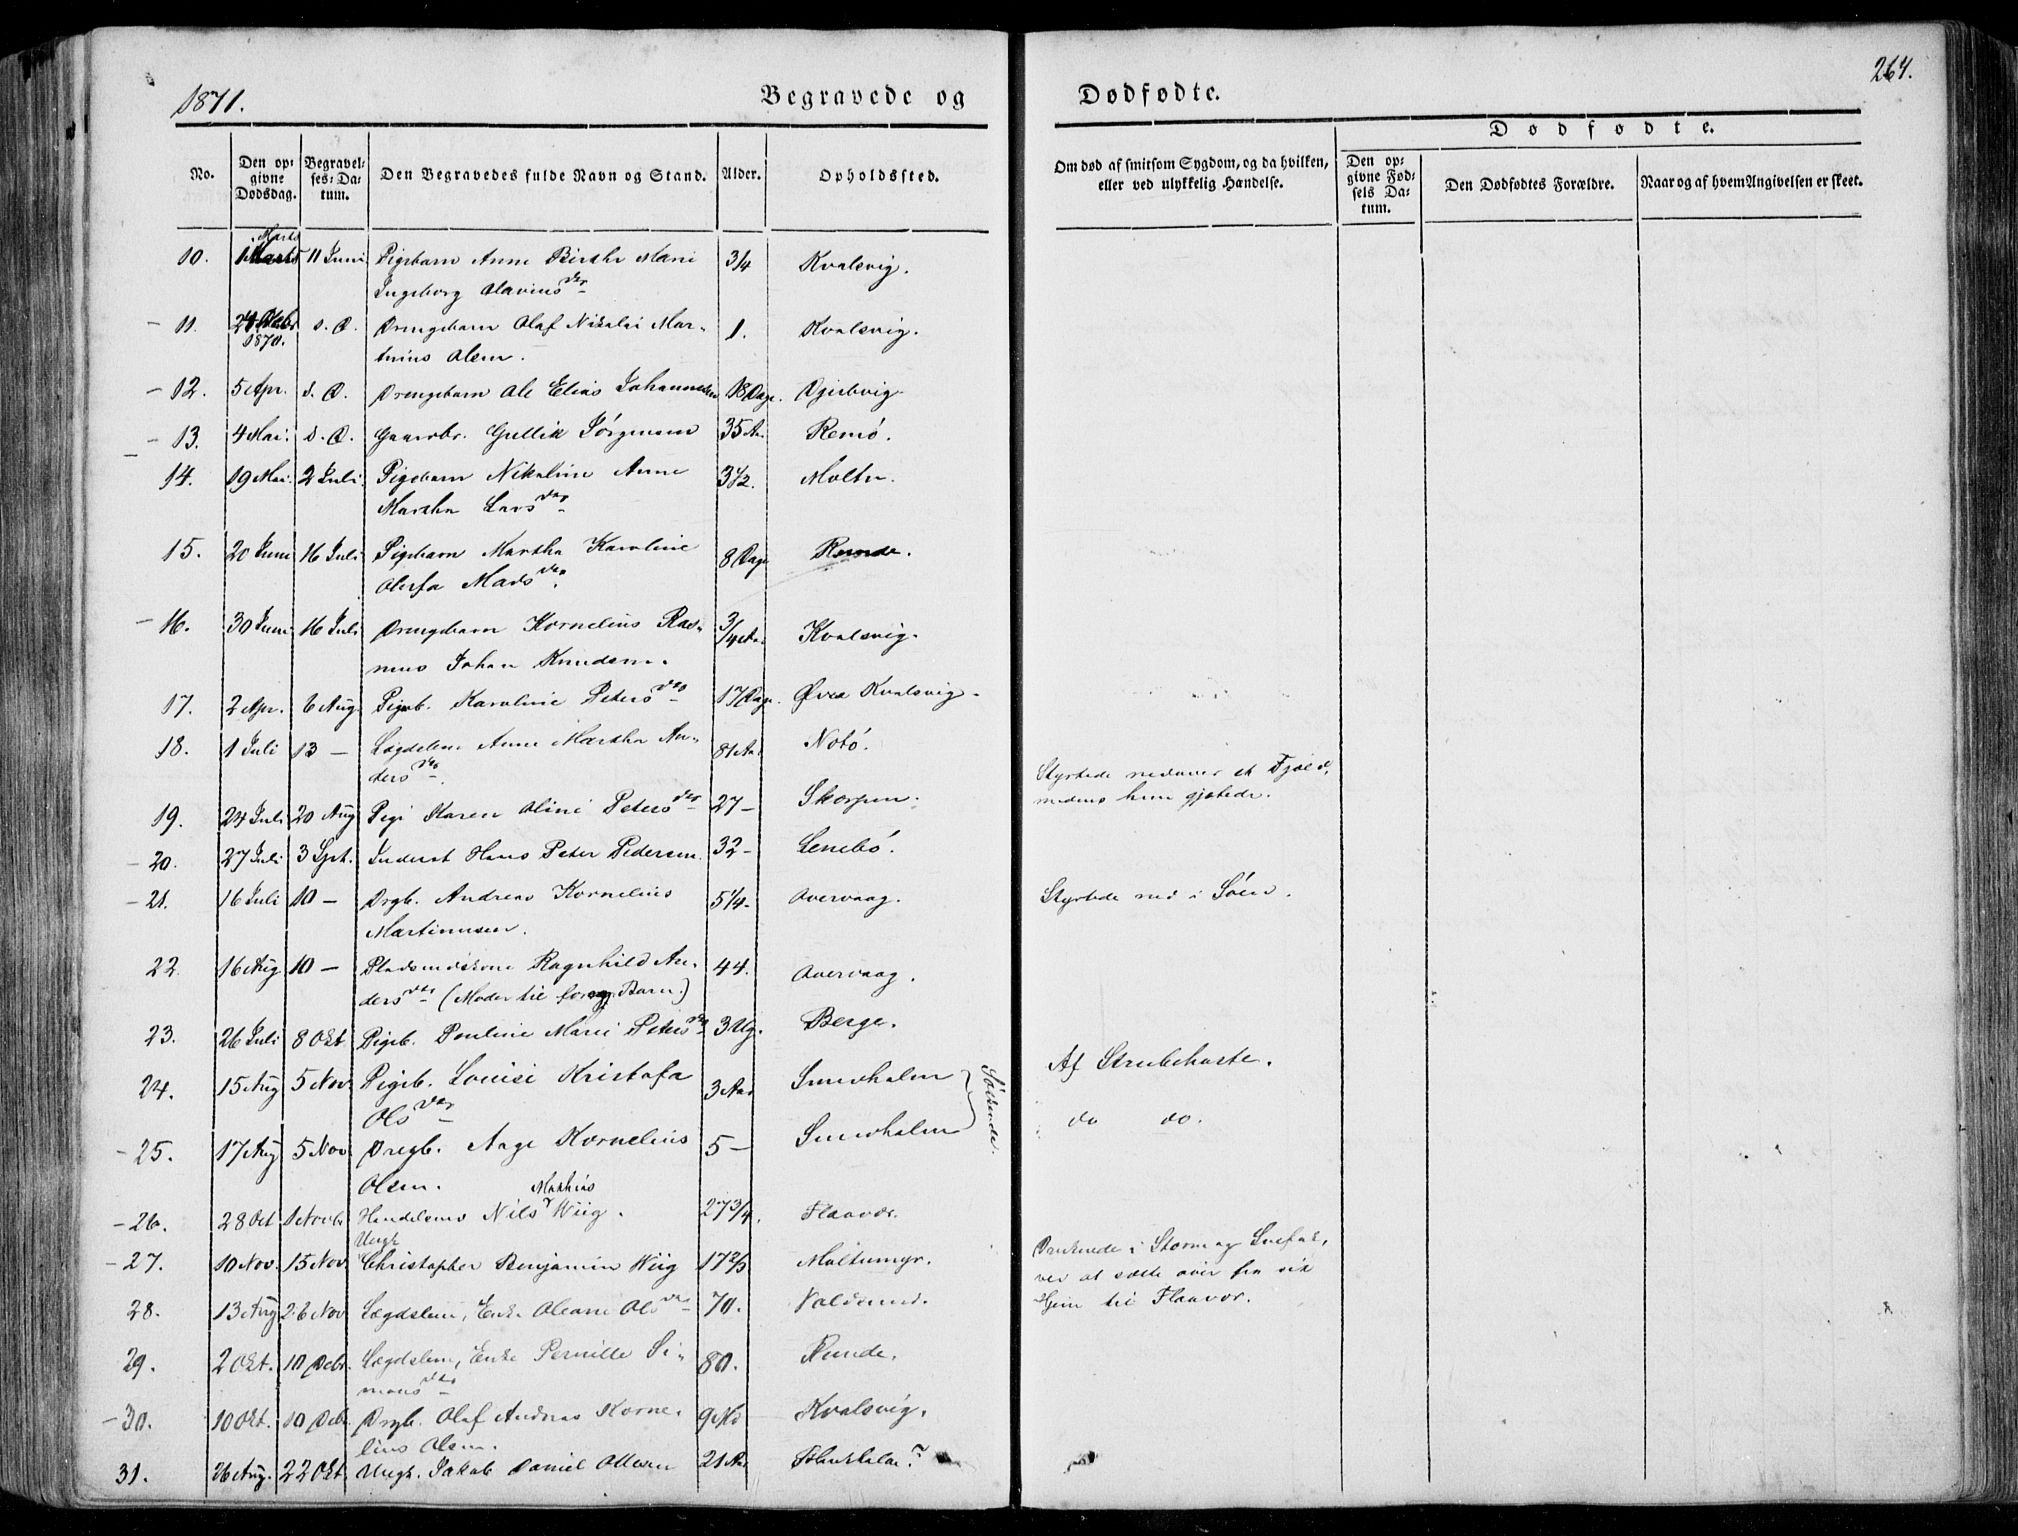 1871.
Begravede og
Dødfødte.
264.
Dødfødte.
No.
Den opgivne Dødsdag.
Begravelses-Datum.
Den Begravedes fulde Navn og Stand.
Alder.
Opholdssted.
Om død af smitsom Sygdom, og da hvilken, eller ved ulykkelig Hændelse.
Den opgivne Fødsels Datum.
Den Dødfødtes Forældre.
Naar og af hvem Angivelsen er skeet.
10. 1 Marts 11 Juni Pigebarn Anne Birthe Marie 3/4 Kvalsvig.
Ingeborg Olavius dtr
11. 1870. s. D. Drengebarn Olaf Nikolai Mar- 1. Kvalsvig.
tinus Olsen.
12. 5 Apr. s. D. Drengebarn Ole Elias Johannesen 18 Dage.
13. 4 Mai. s. D. Gaardbr. Gullik Jørgensen 35 Aa. Remø.
14. 19 Mai. 2 Juli. Pigebarn Nikoline Anne 3 1/2. Moltu.
Martha Lars dtr
15. 20 Juni 16 Juli Pigebarn Martha Karoline 8 Dage Runde.
Mads dtr.
16. 30 Juni 16 Juli Drengebarn Kornelius Ras- 3/4 Aa. Kvalsvig.
mus Johan Knudsen.
17. 2 Apr. 6 Aug. Pigeb. Karoline Peters dtr 17 Dage. Øvre Kvalsvig.
18. 1 Juli 13 — Lægdslem Anne Martha An- 81 Aa. Notø.
ders dtr.
19. 24 Juli 20 Aug Pige Karen Oline Peters dtr 27 — Skorpen.
Styrtede nedover et Fjæld,
medens hun gjætede.
20. 27 Juli 3 Spt. Inderst Hans Peter Pedersen. 32 - Lenebø.
21. 16 Juli 10 — Drgb. Andreas Kornelius 5 1/4 - Overvaag. Styrtede ned i Søen.
Martinusen.
22. 16 Aug 10 — Pladsmdskone Ragnhild An- 44. Overvaag.
ders dtr (Moder til foreg. Barn.)
23. 26 Juli 8 Okt Pigeb. Pauline Marie Peters dtr 3 Ug. Berge.
24. 15 Aug 5 Nov Pigeb. Louise Kristofa 3 Aar Af Strubehoste.
Ols dtr
25. 17 Aug 5 Nov Drgb. Aage Kornelius 5 — do do.
Olsen.
26. 28 Oct Handelsmd Nils Mathias Wiig. 27 3/4. Flaavær.
27. 10 Nov. 15 Nov. Ungk. Christopher Benjamin Wiig Moltumyr.
Druknede i Storm og Snefok,
ved at sætte over fra sit
Hjem til Flaavær.
28. 13 Aug 26 Nov Lægdslem, Enke Oleane Ols dtr 70. Voldsund.
29. 2 Okt. 10 Debr. Lægdslem, Enke Pernille Si- 80. Runde.
mons dtr
30. 10 Okt. 10 Debr. Drgb. Olaf Andreas Korne- Kvalsvig.
lius Olsen.
31. 26 Aug. 22 Okt. Ungk. Jakob Daniel Olsen 21 Aar